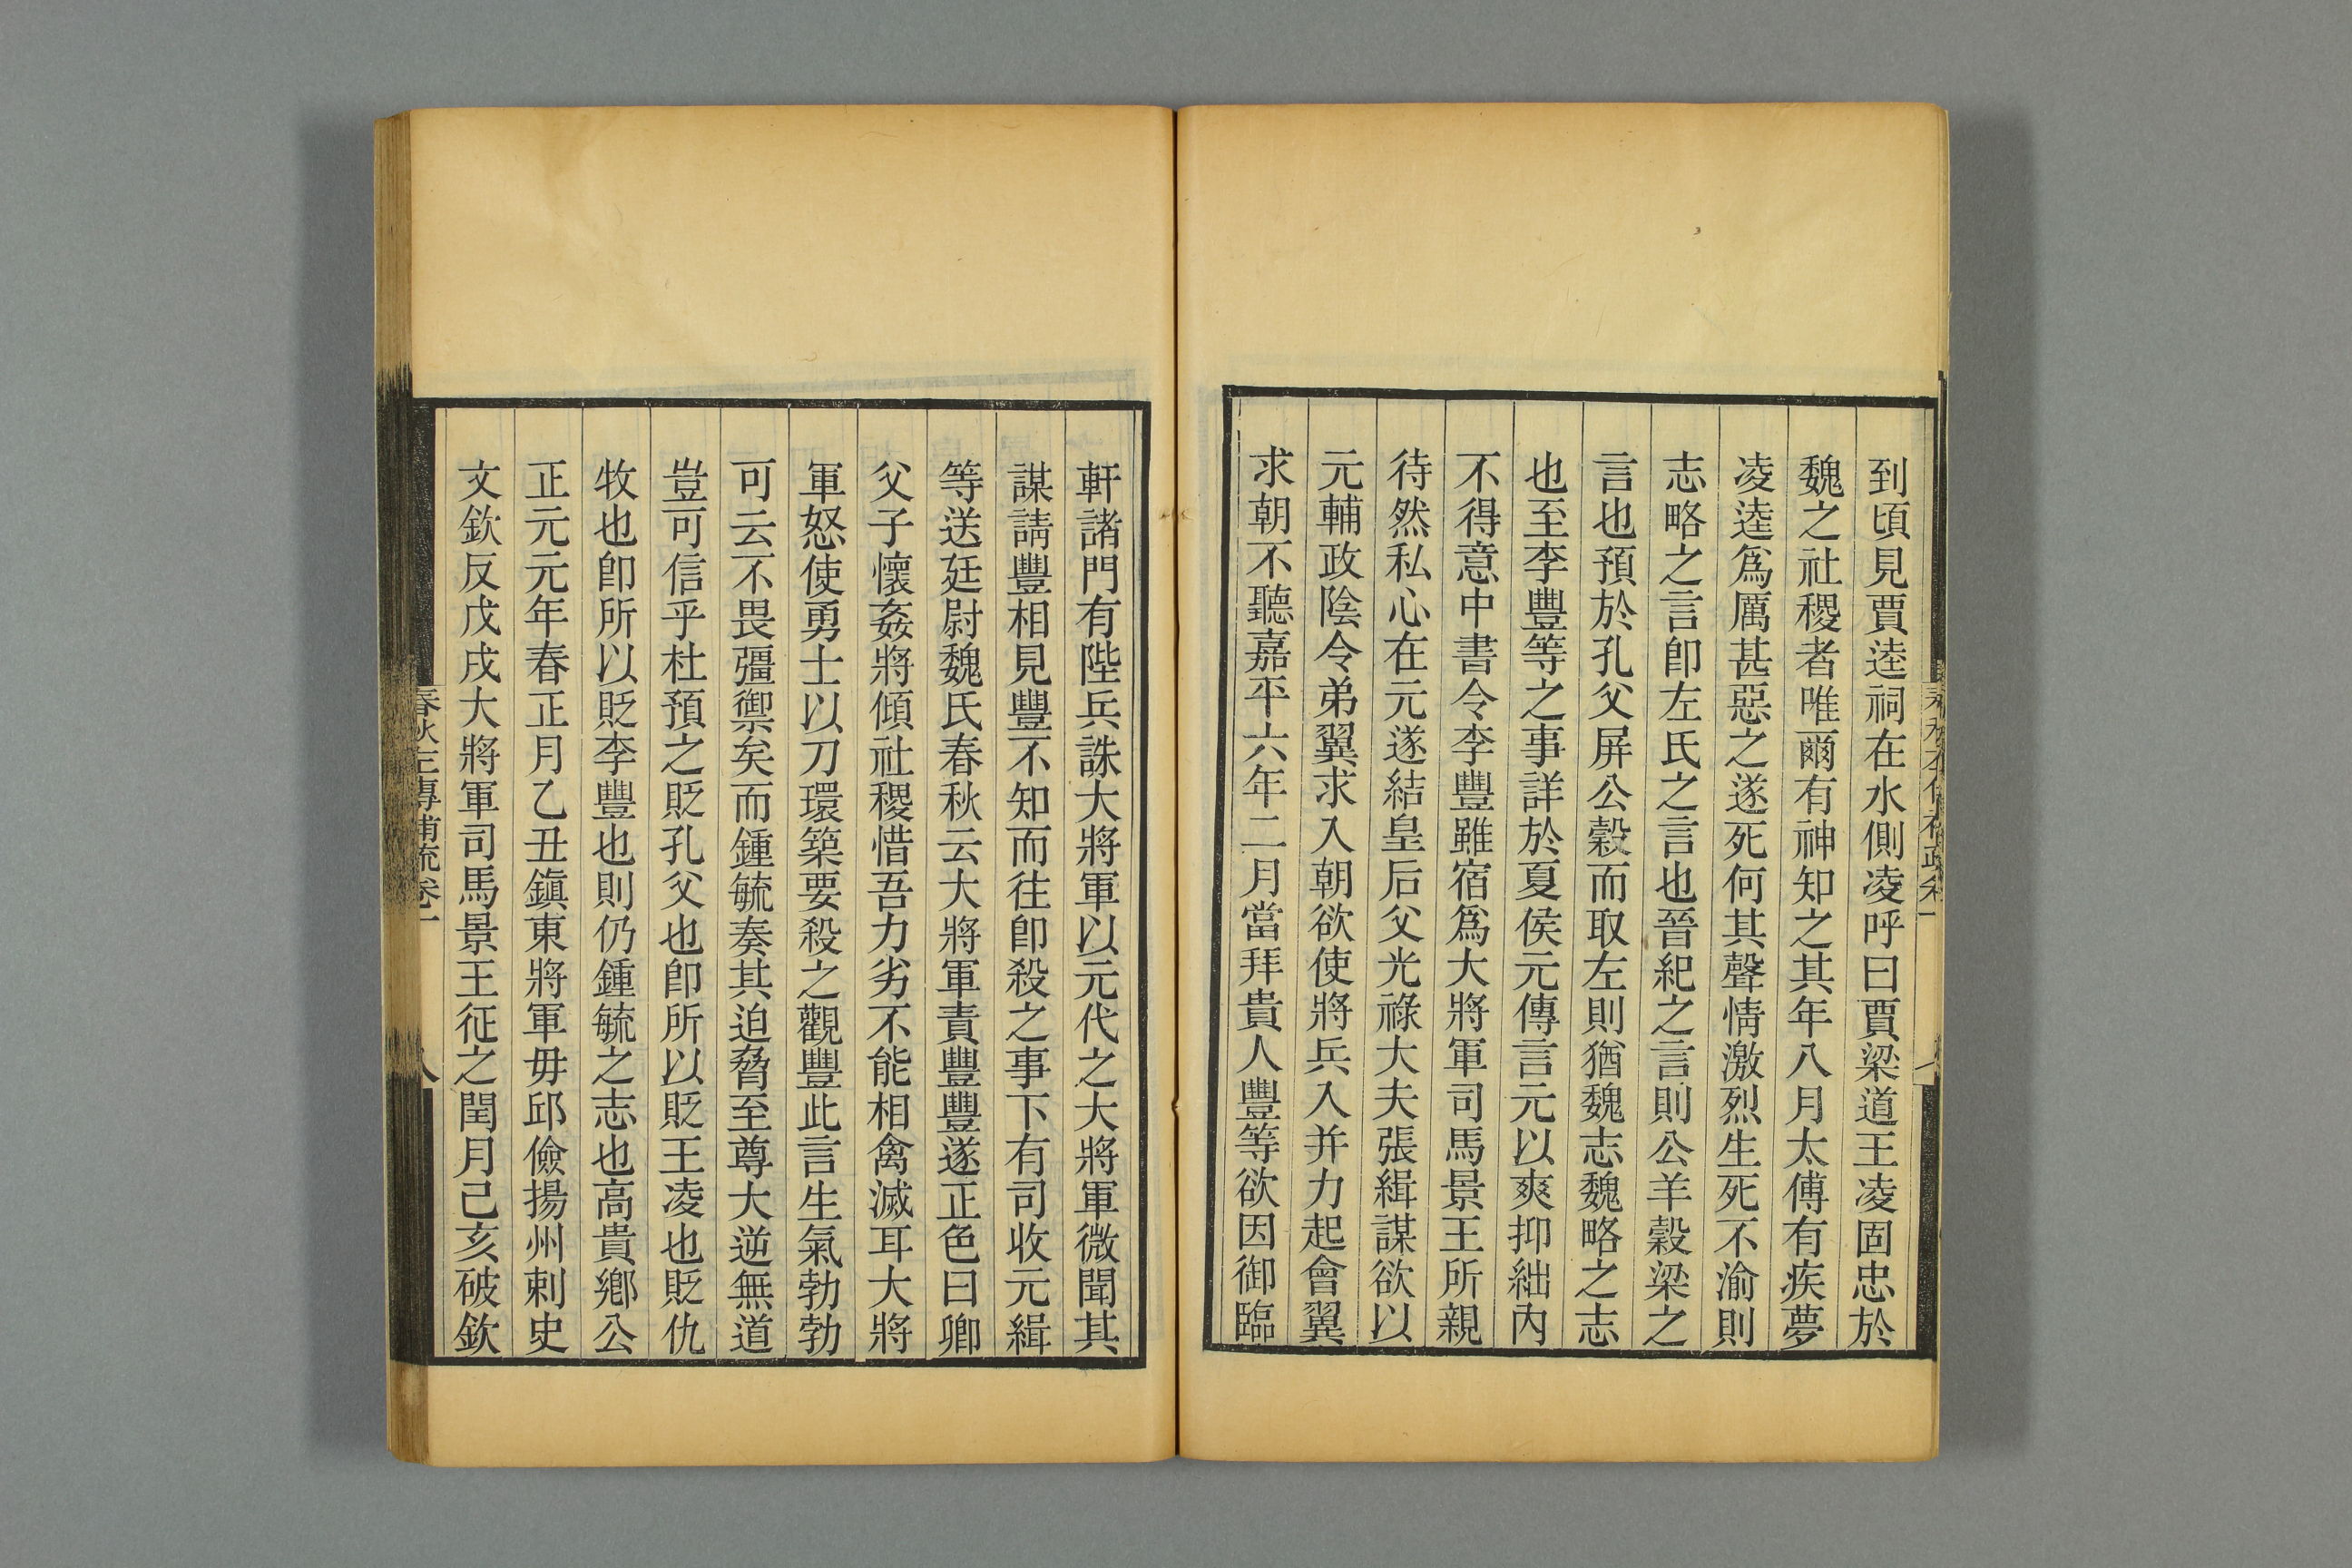 到頃見賈逵祠在水側凌呼曰賈梁道王凌固忠於
魏之社稷者唯爾有神知之其年八月太傅有疾夢
凌逵爲厲甚惡之遂死何其聲情激烈生死不渝則
志略之言卽左氏之言也晉紀之言則公羊穀梁之
言也預於孔父屏公穀而取左則猶魏志魏略之志
也至李豐等之事詳於夏侯元傳言元以爽抑絀內
不得意中書令李豐雖宿爲大將軍司馬景王所親
待然私心在元遂結皇后父光祿大夫張緝謀欲以
元輔政陰令弟翼求入朝欲使將兵入并力起會翼
求朝不聽嘉平六年二月當拜貴人豐等欲因御臨
軒諸門有陛兵誅大將軍以元代之大將軍微聞其
謀請豐相見豐不知而往卽殺之事下有司收元緝
等送廷尉魏氏春秋云大將軍責豐豐遂正色曰卿
父子懷姦將傾社稷惜吾力劣不能相禽滅耳大將
軍怒使勇士以刀環築要殺之觀豐此言生氣勃勃
可云不畏彊禦矣而鍾毓奏其迫脅至尊大逆無道
豈可信乎杜預之貶孔父也卽所以貶王凌也貶仇
牧也卽所以貶李豐也則仍鍾毓之志也高貴鄉公
正元元年春正月乙丑鎭東將軍毋邱儉揚州刺史
文欽反戊戌大將軍司馬景王征之閏月己亥破欽
春秋左傳補疏卷一
八